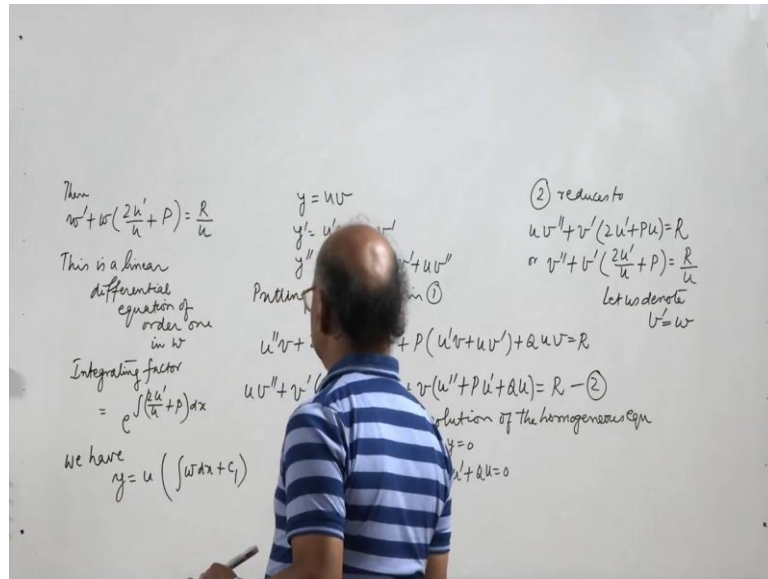 Then
w' + w(2u'/u + P) = R/u
This is a linear
differential
equation of
order one
in w
Integrating factor
= e^∫(2u'/u + P)dx
We have
y = u(∫wdx + C₁)
y = uv
y' = u'
y'' v' + uv''
in ①
u''v + + P(u'v + uv') + Quv = R
uv'' + v'( v(u'' + Pu' + Qu) = R – ②
of the homogeneous equ
y = 0
u' + Qu = 0
② reduces to
uv'' + v'(2u' + Pu) = R
or v'' + v'(2u'/u + P) = R/u
Let us denote
v' = w